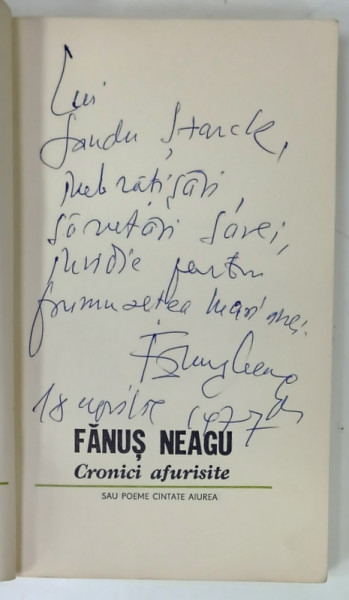 Lui
Sandu Starck,
îmbrățișări,
sărutări Sarei,
invidie pentru
frumusețea
Fănuș Neagu
18 aprilie 1977
FĂNUȘ NEAGU
Cronici afurisite
SAU POEME CÎNTATE AIUREA